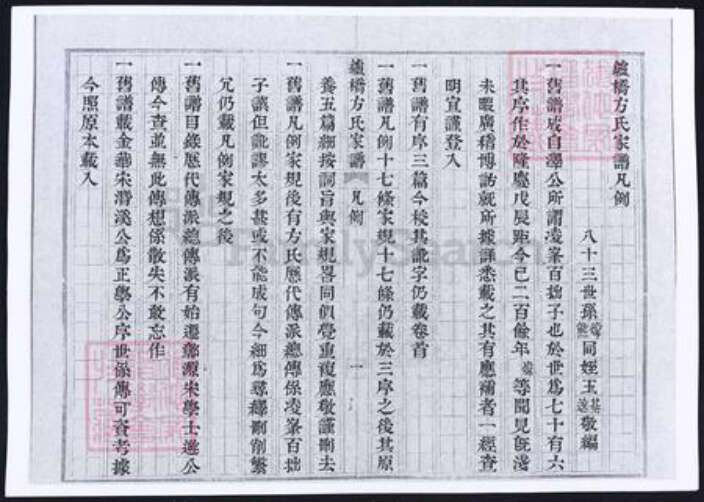 鑪橋方氏家譜凡例
八十三世孫同姪玉敬編
一舊譜成自澤公所謂凌峯百拙子也於世爲七十有六
其序作於隆慶戊辰距今已二百餘年等聞見旣淺
未暇廣稽博訪就所據謹悉載之其有應補者一經查
明宜謹登入
一舊譜有序三篇今校其訛字仍載卷首
一舊譜凡例十七條家規十七條仍載於三序之後其原
鑪橋方氏家譜 凡例 一
養五篇細按詞旨與家規畧同俱覺重複應敬謹刪去
一舊譜凡例家規後有方氏歷代傳派總傳係凌峯百拙
子譔但訛謬太多甚或不能成句今細爲尋繹刪削繁
冗仍載凡例家規之後
一舊譜目錄歷代傳派總傳派有始遷鄞源宋學士遂公
傳今查並無此傳想係散失不敢忘作
一舊譜載金華宋潛溪公爲正學公序世係傳可資考據
今照原本載入
FamilySearch